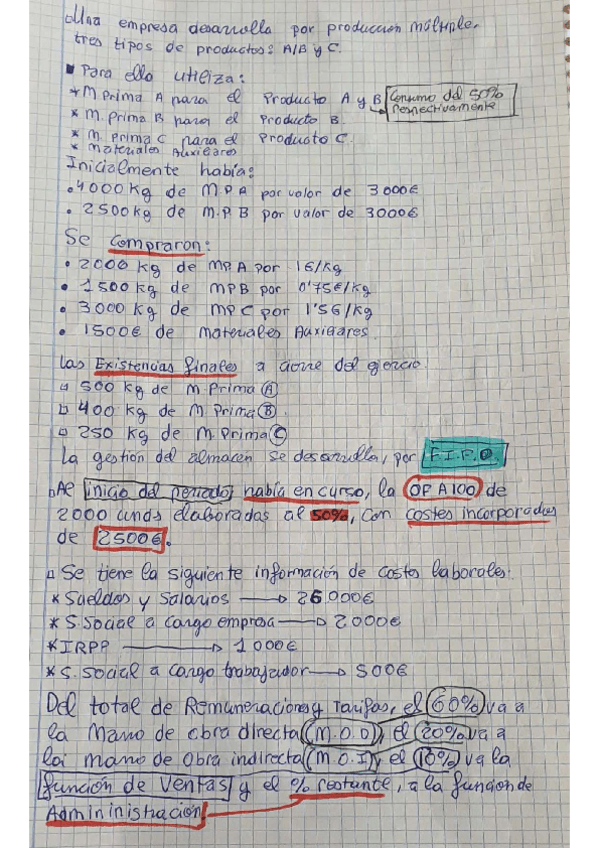 Una empresa desarrolla por produccion múltiple.
tres tipos de productos: A/B y C.
Para ello utiliza:
* M Prima A para el Producto A y B Consumo del 50% Respectivamente
* M. Prima B para el Producto B.
* M. Prima C para el Producto C.
* Materiales Auxiliares
Inicialmente había:
• 4000 Kg de M.P A por valor de 3000€
• 2500 Kg de M.P B por valor de 3000€
Se compraron:
• 2000 kg de MP.A por 1€/Kg
• 1500 kg de MPB por 0'75€/kg
• 3000 kg de MP C por 1'5€/kg
• 1500€ de materiales Auxiliares
Las Existencias finales a cierre del ejercio
500 kg de M.Prima A
400 kg de M Prima B.
250 kg de M. Prima C
La gestión del almacen se desarrolla, por F.I.F.O
Al inicio del periodo, había en curso, la OF A100 de
2000 unds elaboradas al 50%, con costes incorporados
de 2500€.
Se tiene la siguiente información de costes laborales:
* Sueldos y Salarios → 26.000€
* S.Social a cargo empresa → 2000€
* IRPP → 1000€
* S. Social a cargo trabajador → 500€
Del total de Remuneraciones y Tarifas, el 60% va a
la Mano de obra directa (M.O.D), el 20% va a
la mano de Obra indirecta (M.O.I), y el 10% va la
función de Ventas y el % restante, a la función de
Admininistración